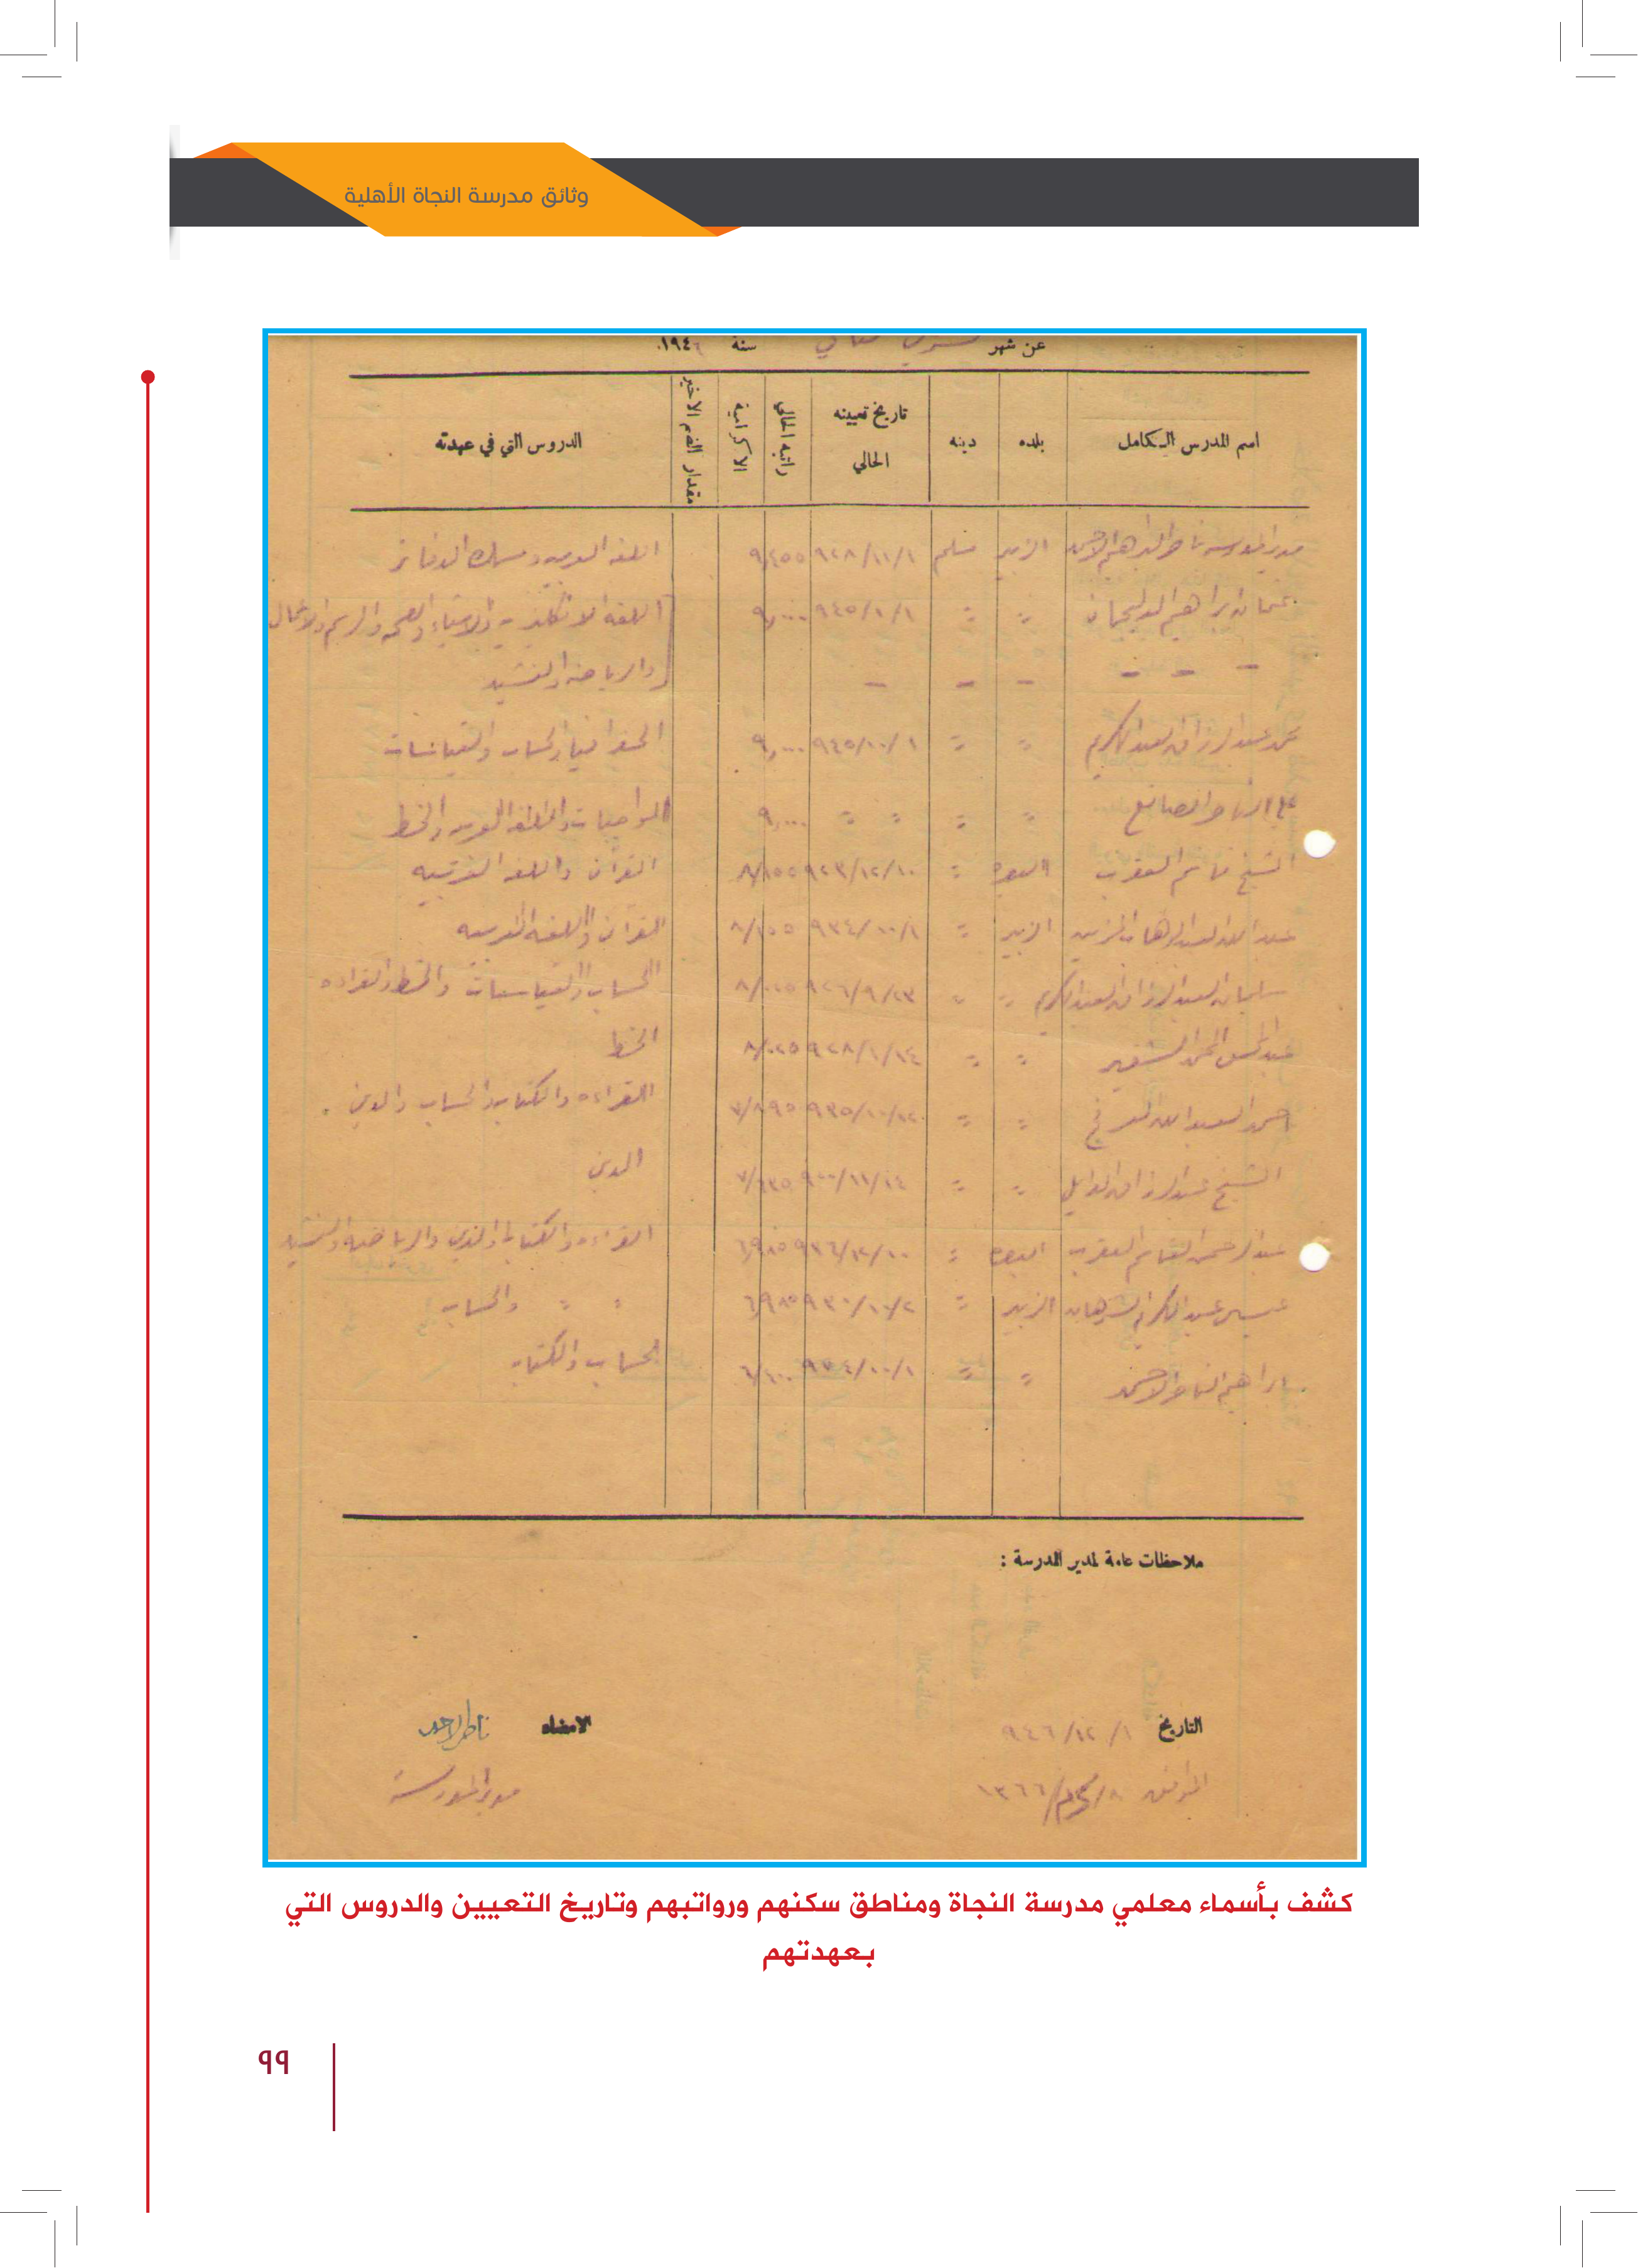 وثائق مدرسة النجاة الأهلية
عن شهر تشرين ثاني سنة ١٩٤٦
اسم المدرس الكامل بلده دينه تاريخ تعيينه الحالي راتبه الحالي الاكرامية مقدار الضم الاخير الدروس التي في عهدته
مدير المدرسه ناصر الابراهيم الاحمد الزبير مسلم ٩٢٨/١١/١ اللغه العربيه ومسك الدفاتر
عثمان ابراهيم ٩٤٥/١٠/١ ٩,٠٠٠ اللغه الانكليزيه والاشياء والصحه والرسم والاعمال
– – – – – – والرياضه والنشيد
محمد عبد الرزاق العبد الكريم " " ٩٤٥/١٠/١ ٩,٠٠٠ الجغرافيا والحساب والقياسات
علي الناصر الصانع " " " " ٩,٠٠٠ الواجبات واللغه العربيه والخط
الشيخ قاسم العقرب البصره " ٩٢٣/١٢/١٠ القرآن واللغه العربيه
عبد الله العبد الوهاب الزبير " ٩٣٤/١٠/١ ٨/١٥٥ القرآن واللغه العربيه
سليمان العبد الرزاق العبد الكريم " " ٩٢٦/٩/٢٣ ٨/٠٢٥ الحساب والقياسات والخط والقراءه
عبد المحسن الحمد " " ٩٢٨/١/١٤ ٨/٠٢٥ الخط
احمد العبد الله العرفج " " ٧/٨٩٥ القراءه والكتابه والحساب والدين
الشيخ عبد الرزاق الدايل " " ٩٠٠/١١/١٤ الدين
عبد الرحمن القاسم العقرب البصره " ٩٣٦/١٢/١٠ ٦,٩٨٥ القراءه والكتابه والدين والرياضه والنشيد
عيسى عبد الكريم الشرهان الزبير " ٩٣٠/١٠/٢ ٦,٩٨٥ " " والحساب
ابراهيم الناصر الاحمد " " ٩٣٤/١٠/١ ٦/٤٠٠ الحساب والكتابه
ملاحظات عامة لمدير المدرسة :
التاريخ ١/ ١٢/ ٩٤٦ الامضاء ناصر الاحمد
الموافق ٨/محرم/١٣٦٦ مدير المدرسة
كشف بأسماء معلمي مدرسة النجاة ومناطق سكنهم ورواتبهم وتاريخ التعيين والدروس التي
بعهدتهم
٩٩